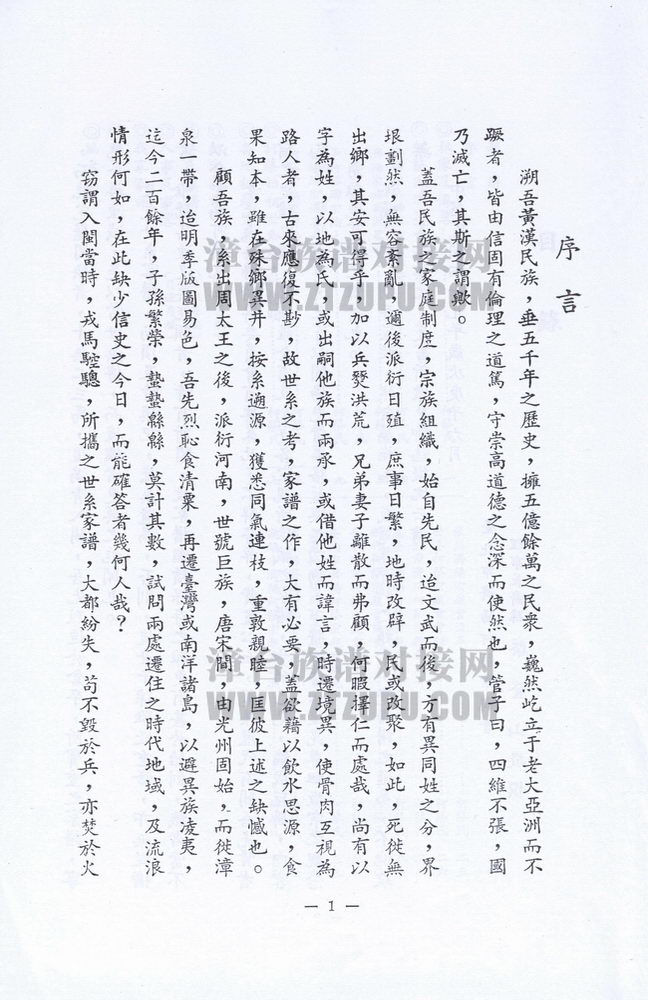 序言
溯吾黃漢民族，垂五千年之歷史，擁五億餘萬之民衆，巍然屹立于老大亞洲而不
蹶者，皆由信固有倫理之道篤，守崇高道德之念深而使然也，管子曰，四維不張，國
乃滅亡，其斯之謂歟。
蓋吾民族之家庭制度，宗族組織，始自先民，迨文武而後，方有異同姓之分，界
垠劃然，無容紊亂，邇後派衍日殖，庶事日繁，地時改辟，民或改聚，如此，死徙無
出鄉，其安可得乎，加以兵燹洪荒，兄弟妻子離散而弗顧，何暇擇仁而處哉，尚有以
字為姓，以地為氏，或出嗣他族而兩承，或借他姓而諱言，時遷境異，使骨肉互視為
路人者，古來應復不尠，故世系之考，家譜之作，大有必要，蓋欲藉以飲水思源，食
果知本，雖在殊鄉異井，按系遡源，獲悉同氣連枝，重敦親睦，匡彼上述之缺憾也。
顧吾族，系出周太王之後，派衍河南，世號巨族，唐宋間，由光州固始，而徙漳
泉一帶，迨明季版圖易色，吾先烈恥食清粟，再遷臺灣或南洋諸島，以避異族凌夷，
迄今二百餘年，子孫繁榮，蟄蟄緜緜，莫計其數，試問兩處遷住之時代地域，及流浪
情形何如，在此缺少信史之今日，而能確答者幾何人哉？
竊謂入閩當時，戎馬騜驄，所攜之世系家譜，大都紛失，苟不毀於兵，亦焚於火
— 1 —
漳台族谱对接网
WWW.ZTZUPU.COM
漳台族谱对接网
WWW.ZTZUPU.COM